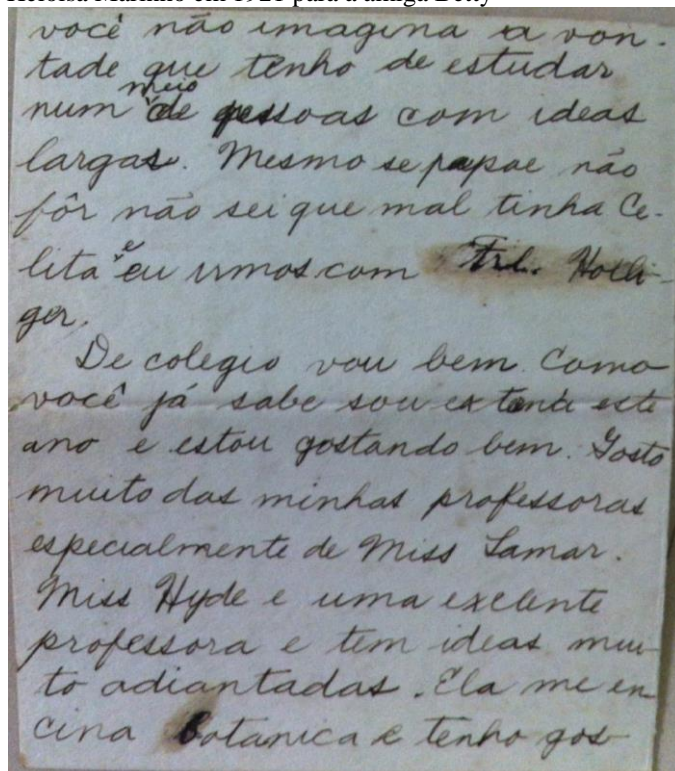 Heloisa Marinho em 1921 para a amiga Betty
você não imagina a von-
tade que tenho de estudar
num meio de pessoas com ideas
largas. Mesmo se papae não
fôr não sei que mal tinha Ce-
lita e eu irmos com Frl. Holli-
ger.
De colegio vou bem. Como
você já sabe sou externa este
ano e estou gostando bem. Gosto
muito das minhas professoras
especialmente de Miss Lamar.
Miss Hyde e uma exelente
professora e tem ideas mui-
to adiantadas. Ela me en-
cina botanica e tenho gos-